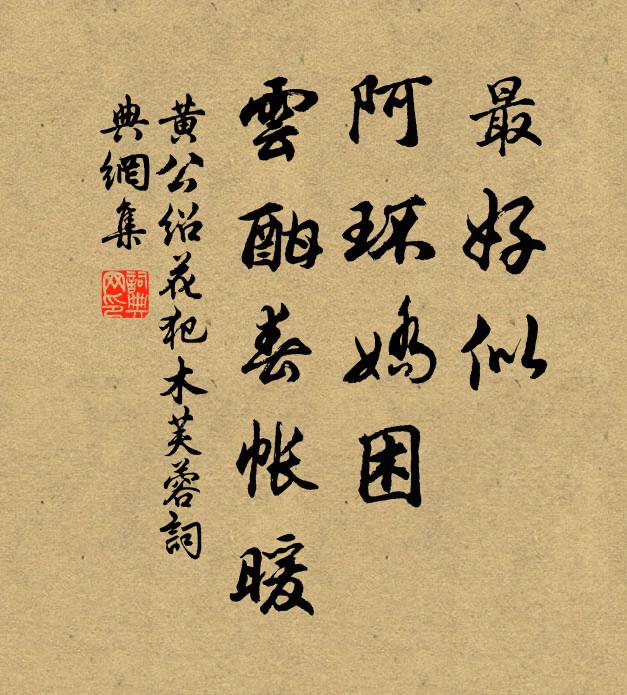 最好似
阿環嬌困
雲酣春帳暖
黄公绍花犯木芙蓉詞
典網集
詞典網印